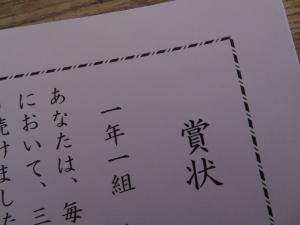 賞状
一年一組
あなたは、毎
において、三
続けました